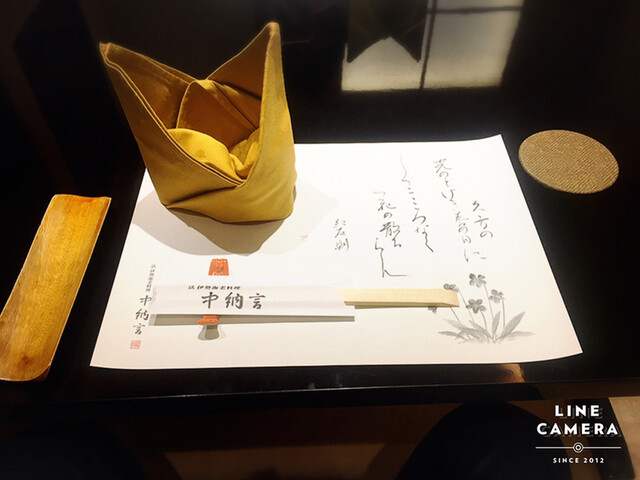 久方の
光のどけき春の日に
しづこころなく
花の散るらん
紀友則
活伊勢海老料理
中納言
活伊勢海老料理
中納言
LINE
CAMERA
SINCE 2012